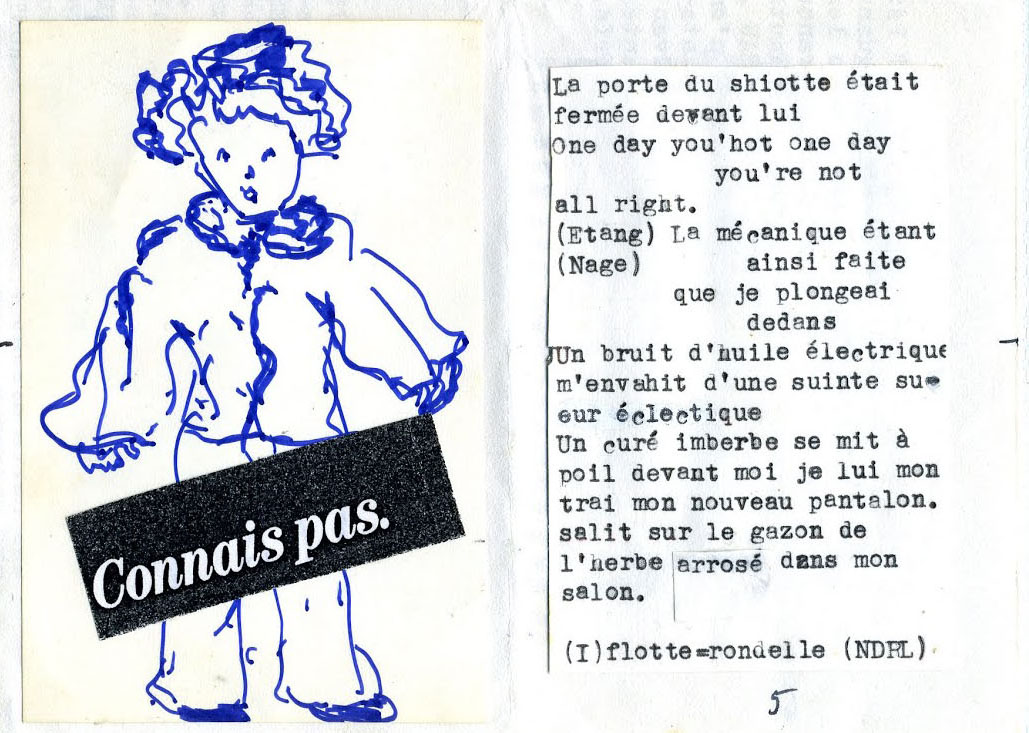 Connais pas.
La porte du shiotte était
fermée devant lui
One day you'hot one day
you're not
all right.
(Etang) La mécanique étant
(Nage) ainsi faite
que je plongeai
dedans
Un bruit d'huile électrique
m'envahit d'une suinte su-
eur éclectique
Un curé imberbe se mit à
poil devant moi je lui mon
trai mon nouveau pantalon.
salit sur le gazon de
l'herbe arrosé dans mon
salon.
(I)flotte=rondelle (NDRL)
5